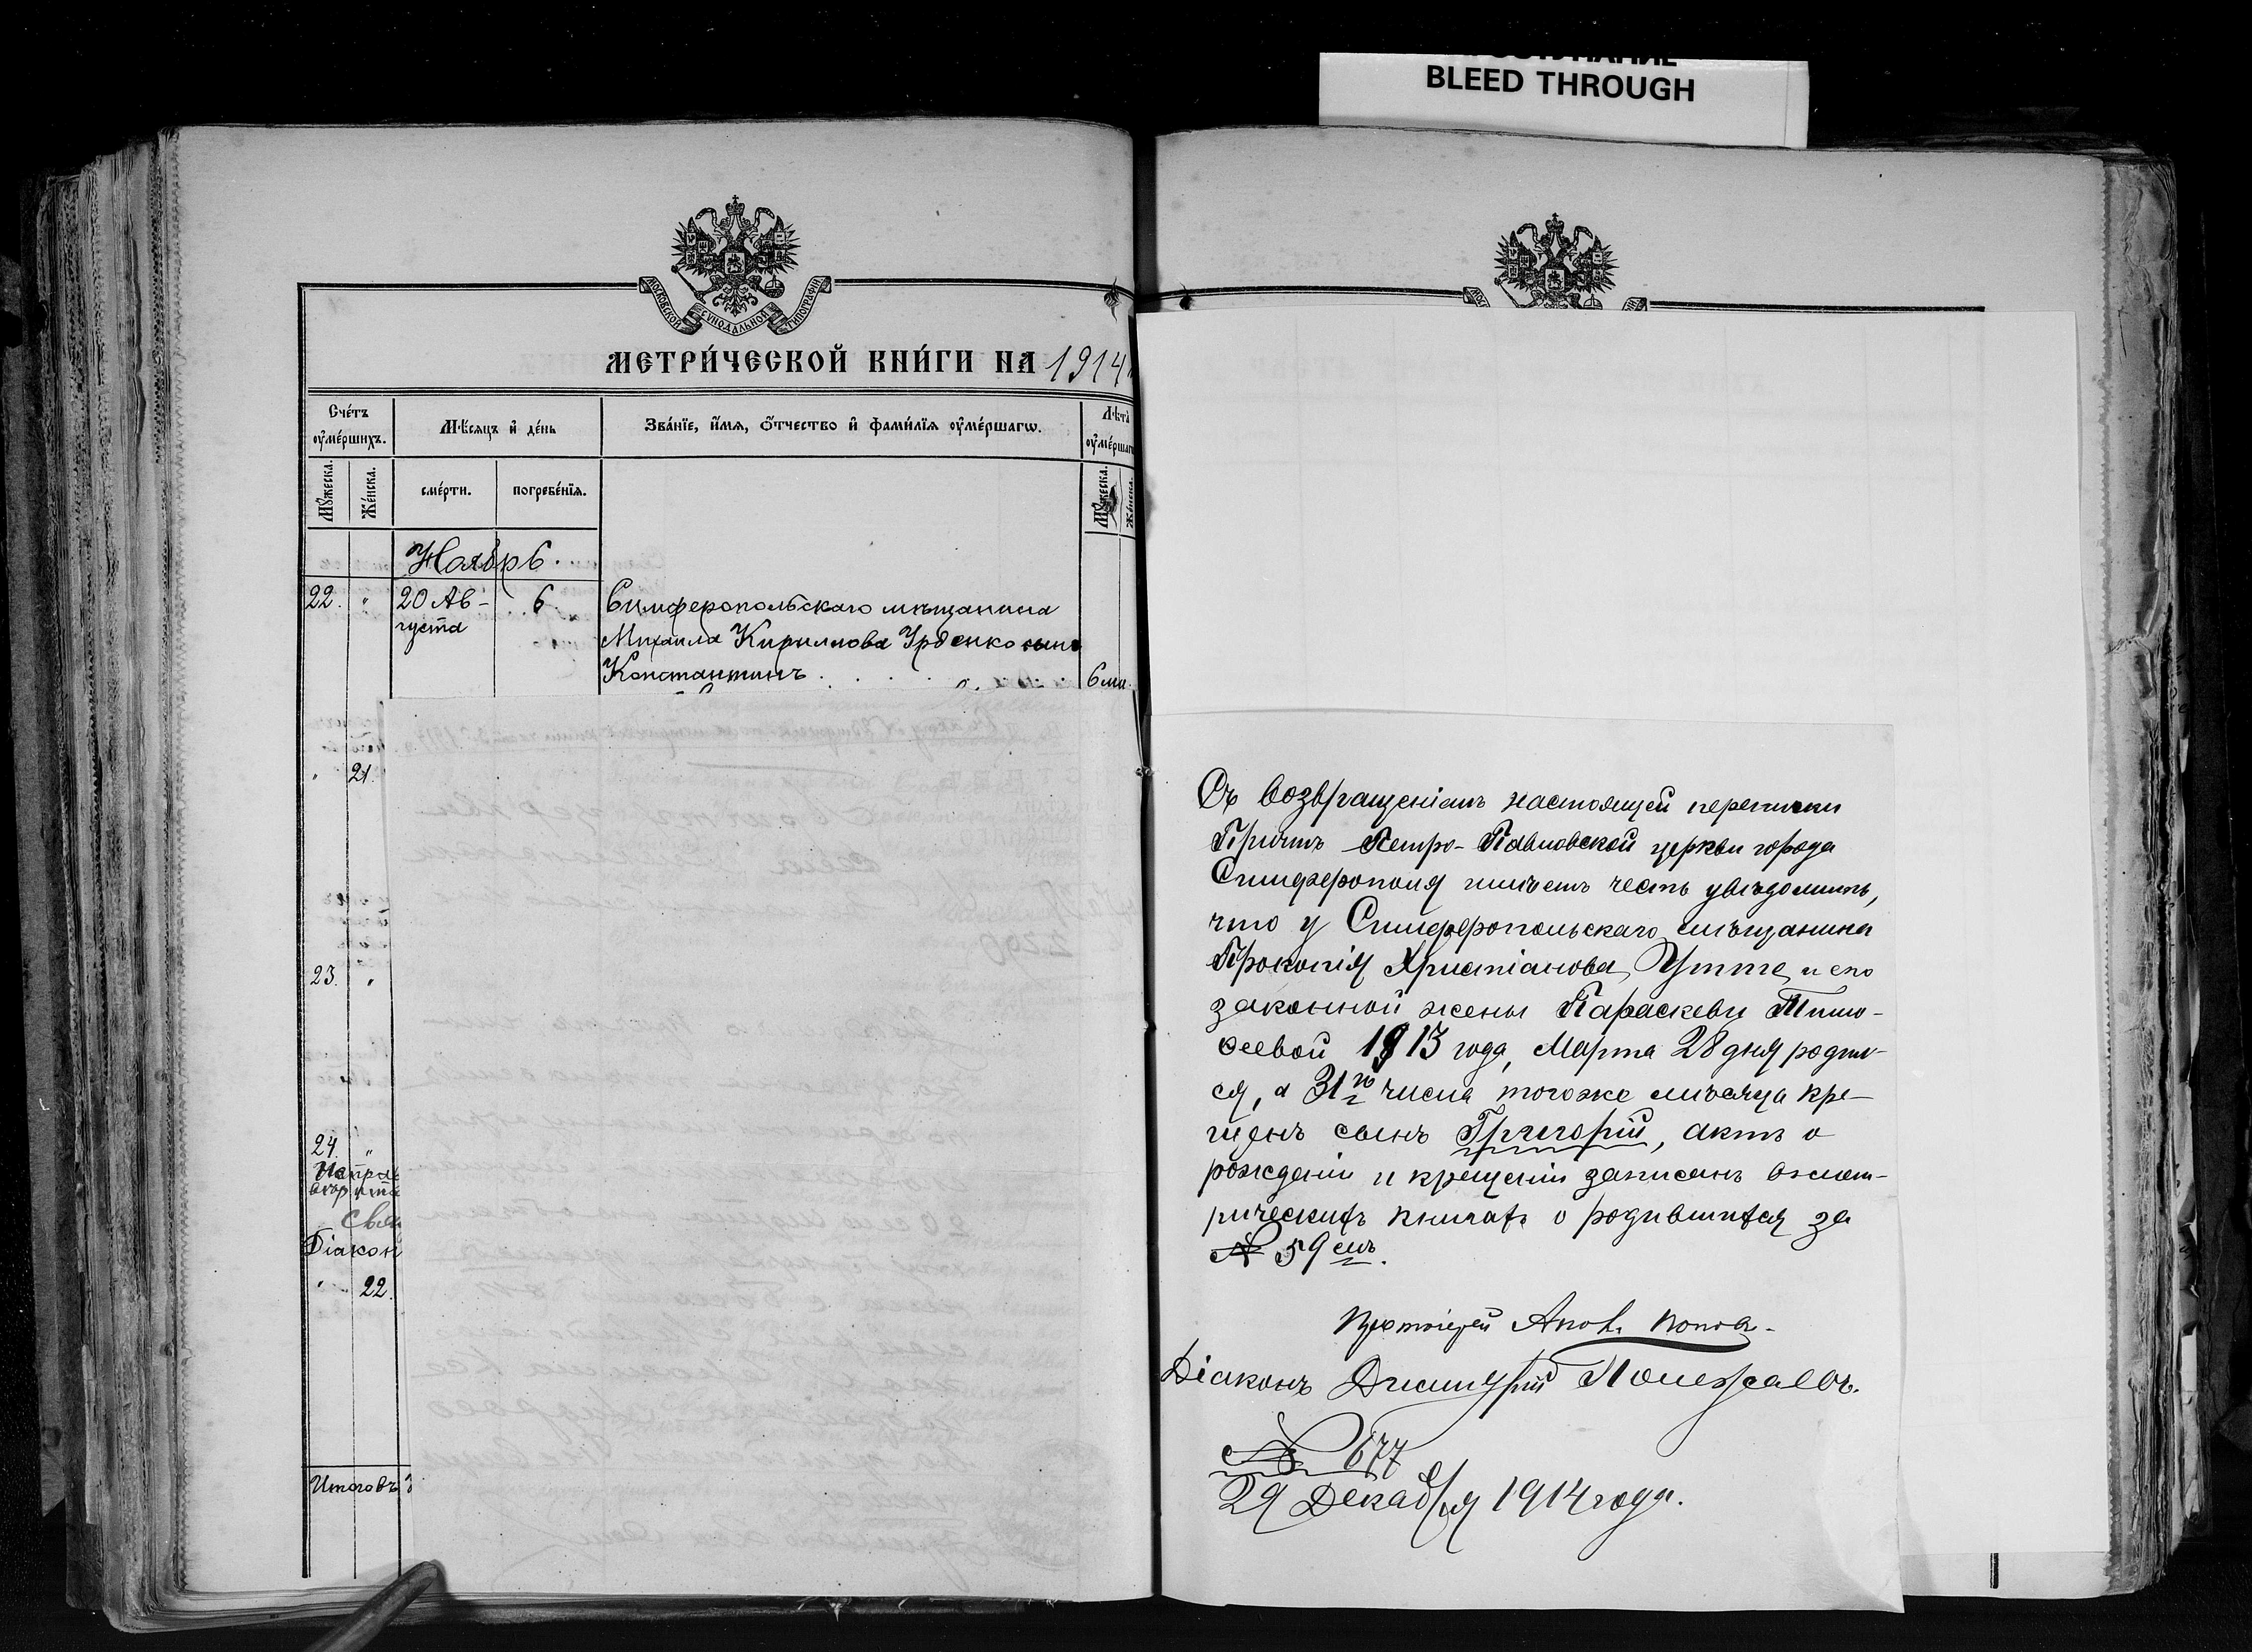 BLEED THROUGH
МОСКОВСКОЙ СѴНОДАЛЬНОЙ ТИПОГРАФІИ
МЕТРИ́ЧЕСКОЙ КНИ́ГИ НА 1914
Сче́тъ ᲂу҆ме́ршихъ.
Мѣ́сяцъ и҆ де́нь
Зва́нїе, и҆́мя, ѻ҆́тчество и҆ фами́лїя ᲂу҆ме́ршагѡ.
Лѣ́та
Мꙋ́жеска.
Же́нска.
сме́рти.
погребе́нїя.
Мꙋ́жеска.
Же́нска.
Ноябрь.
22. " 20 Ав- 6. Симферопольскаго мѣщанина
густа Михаила Кириллова Урденко сынъ
Константинъ . . . 6 м.
" 21.
23. "
24. "
Діакон
" 22.
Итого въ
Съ возвращеніемъ настоящей переписки
Причтъ Петро-Павловской церкви города
Симферополя имѣетъ честь увѣдомить,
что у Симферопольскаго мѣщанина
Прокопія Христіанова и его
законной жены Параскевы Тимо-
ѳеевой 1913 года, Марта 28 дня родил-
ся, а 31го числа тогоже мѣсяца кре-
щенъ сынъ Григорій, актъ о
рожденіи и крещеніи записанъ въ мет-
рическихъ книгахъ о родившихся за
№ 59 емъ.
Протоіерей Попов
Діаконъ Димитрій
№ 677
29 Декабря 1914 года.